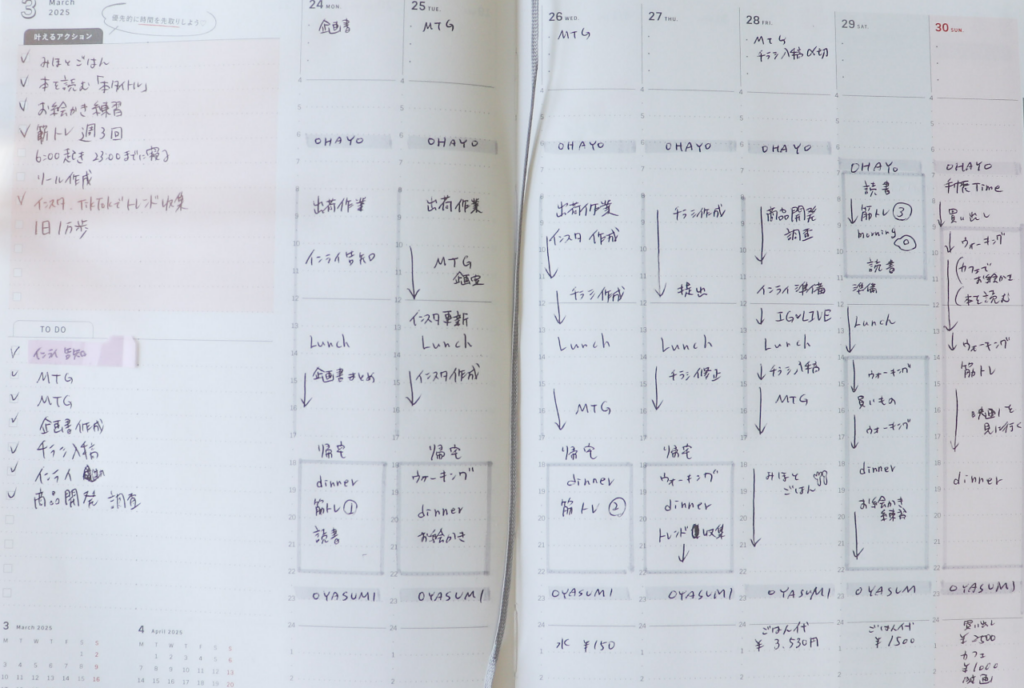 3 March
2025
優先的に時間を先取りしよう♡
叶えるアクション
✓ みほとごはん
✓ 本を読む「本タイトル」
✓ お絵かき練習
✓ 筋トレ 週3回
6:00起き 23:00までに寝る
リール作成
✓ インスタ、TikTokでトレンド収集
1日1万歩
TO DO
✓ インライ告知
✓ MTG
✓ MTG
✓ 企画書作成
✓ チラシ入稿
✓ インライ
✓ 商品開発 調査
3 March 2025
M T W T F S S
4 April 2025
M T W T F S S
24 MON.
企画書
OHAYO
出荷作業
インライ告知
Lunch
企画書まとめ
帰宅
dinner
筋トレ①
読書
OYASUMI
25 TUE.
MTG
OHAYO
出荷作業
MTG
企画室
インスタ更新
Lunch
インスタ作成
帰宅
ウォーキング
dinner
お絵かき
OYASUMI
26 WED.
MTG
OHAYO
出荷作業
インスタ作成
チラシ作成
Lunch
MTG
帰宅
dinner
筋トレ②
OYASUMI
水 ¥150
27 THU.
OHAYO
チラシ作成
提出
Lunch
チラシ修正
帰宅
ウォーキング
dinner
トレンド収集
OYASUMI
28 FRI.
MTG
チラシ入稿〆切
OHAYO
商品開発
調査
インライ準備
IG LIVE
Lunch
チラシ入稿
MTG
みほと
ごはん
OYASUMI
ごはん代
¥3.530円
29 SAT.
OHAYO
読書
筋トレ③
morning
読書
準備
Lunch
ウォーキング
買いもの
ウォーキング
dinner
お絵かき
練習
OYASUMI
ごはん代
¥1500
30 SUN.
OHAYO
手帳Time
買い出し
ウォーキング
(カフェで
お絵かき
(本を読む
ウォーキング
筋トレ
映画を
見に行く
dinner
OYASUMI
買い出し
¥2500
カフェ
¥1000
映画